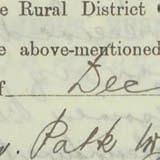 e Rural District
e above-mentioned
f Dec
. Path